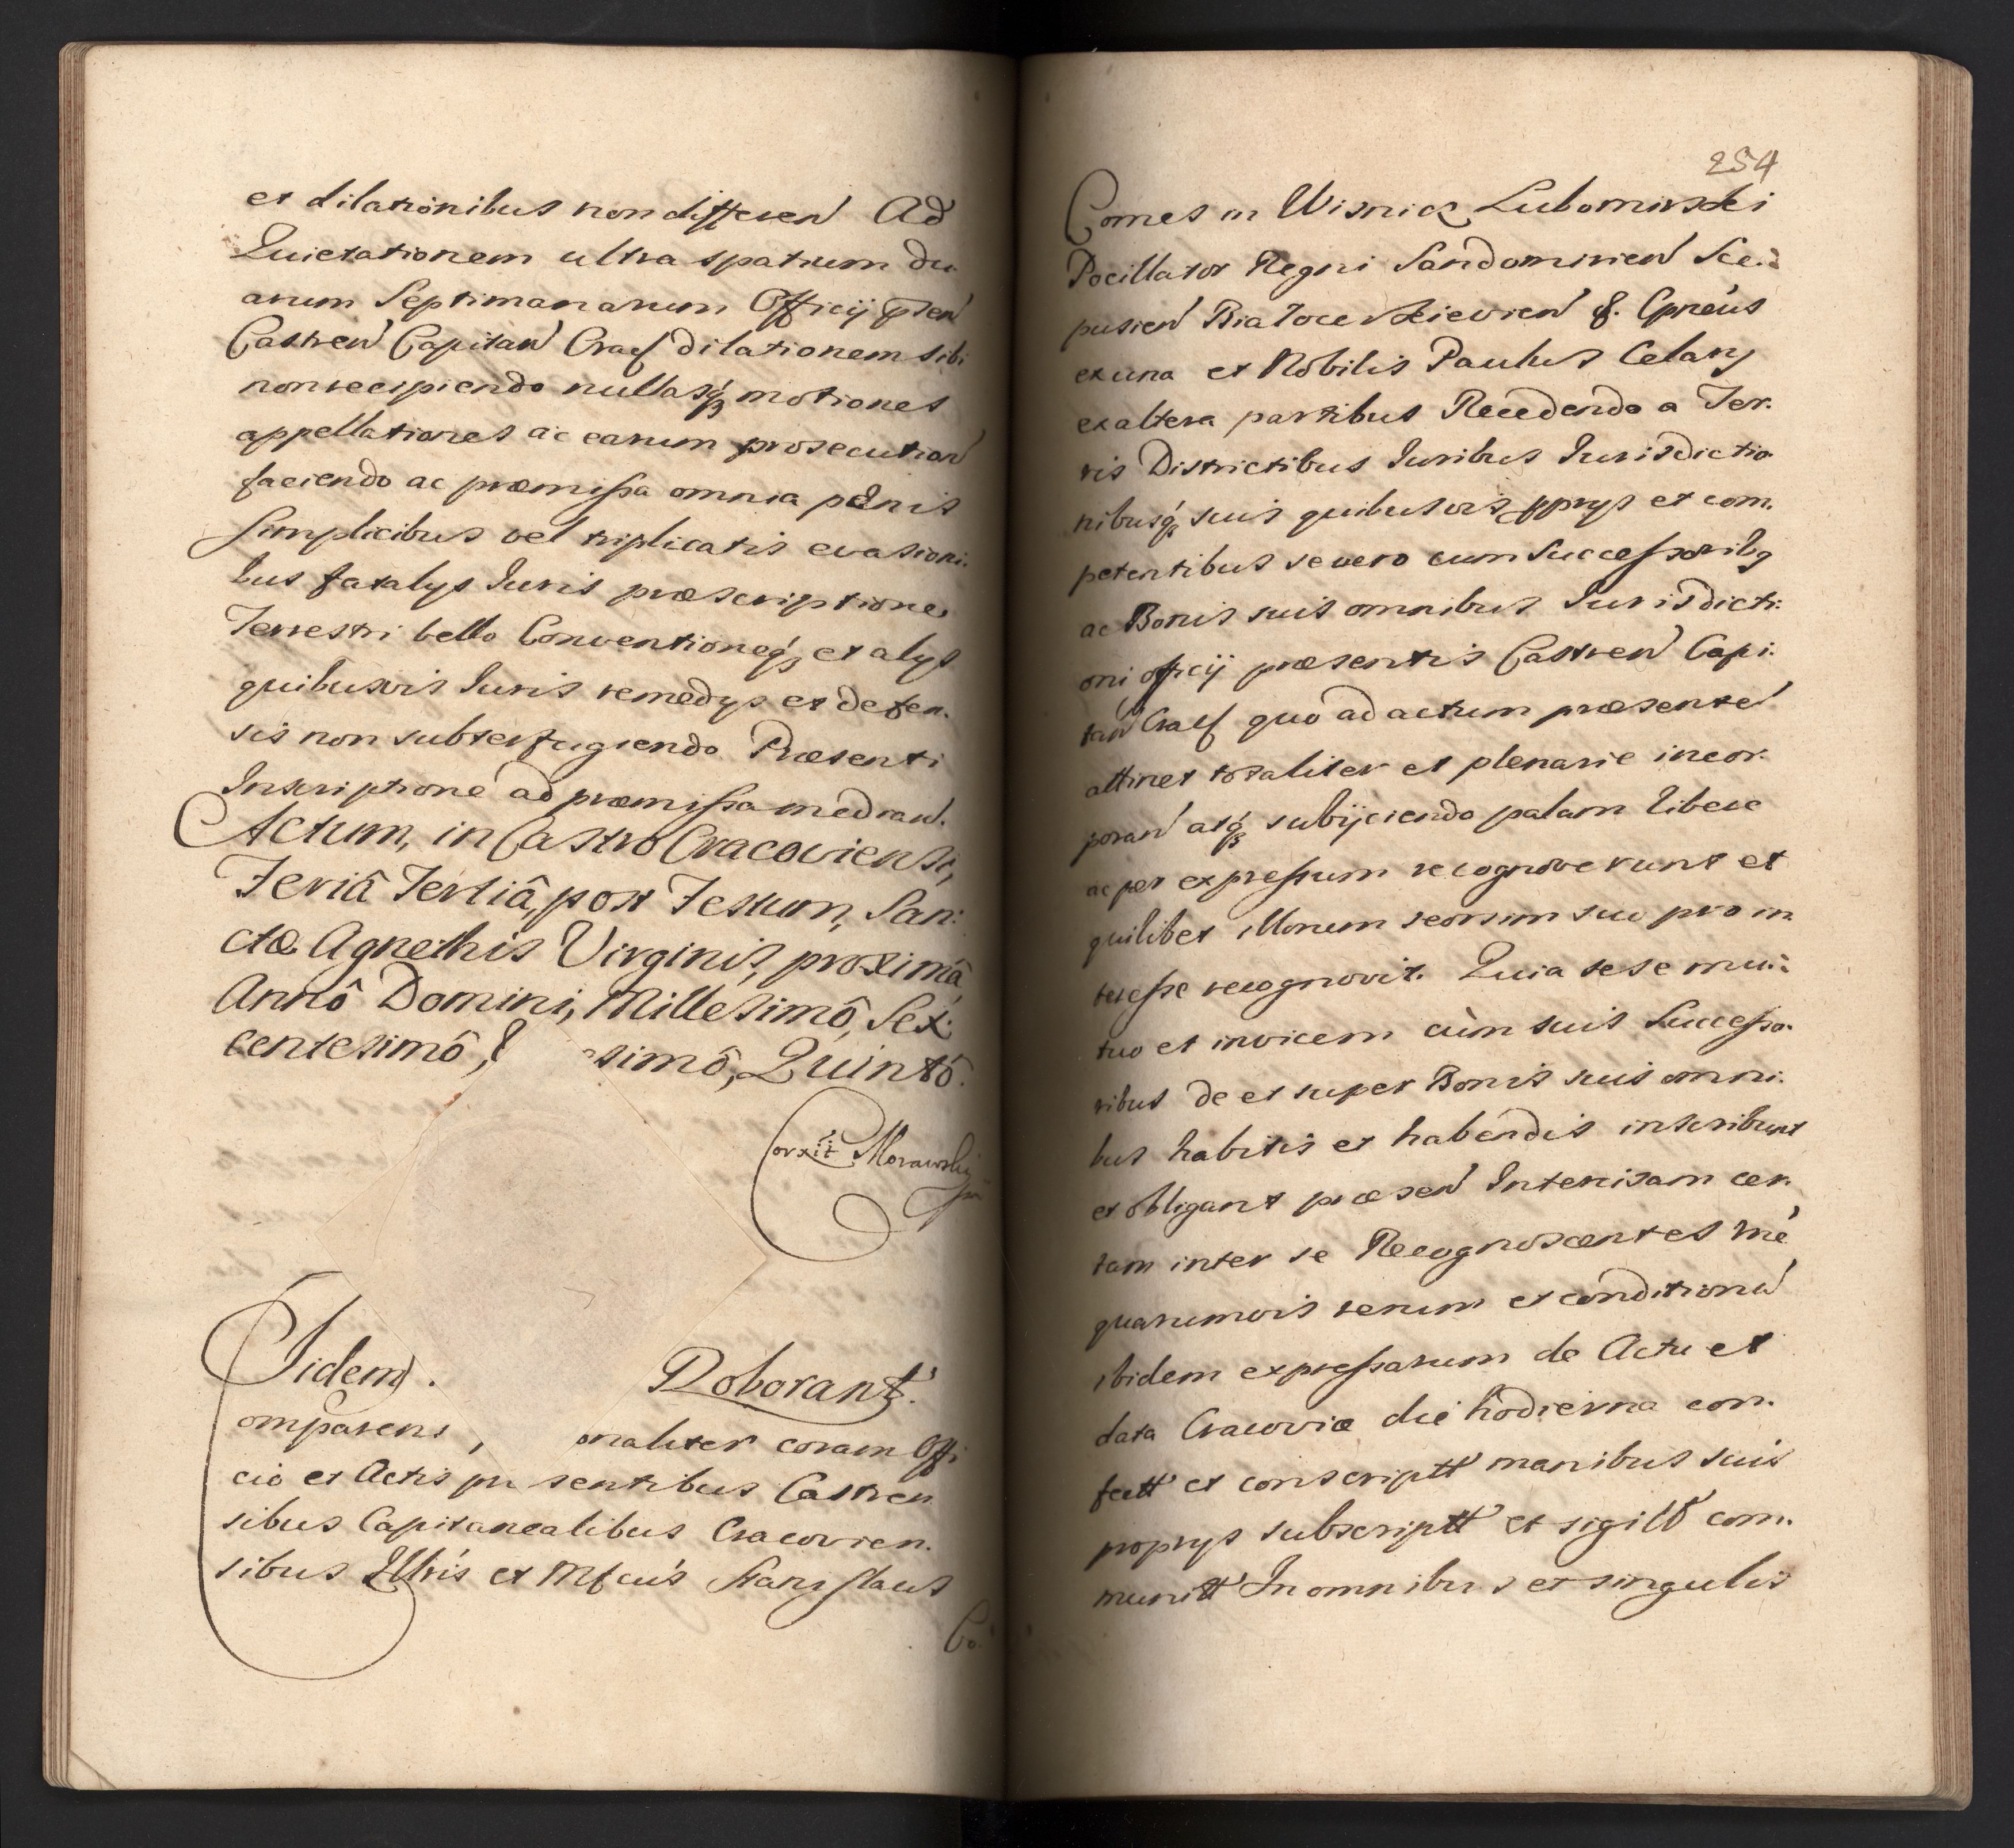 et dilationibus non differen Ad
Quietationem ultra spatium du
arum Septimanarum Officij pñten
Castren Capitan Crac dilationem sibi
non recipiendo nullasq₃ motiones
appellationes ac earum prosecution
faciendo ac præmissa omnia pænis
simplicibus vel triplicatis evasioni.
bus fatalijs Iuris præscriptione
Terrestri bello Conventioneq₃ et alijs
quibusvis Iuris remedijs et defen.
sis non subterfugiendo Præsenti
Inscriptione ad præmissa median.
Actum, in Castro Cracoviensi,
Feriâ Tertiâ, post Festum, San:
ctæ Agnethis Virginis, proximâ
Annô Domini, Millesimô, Sex:
centesimô, simô, Quintô.
Corxit Morawsky
Iidem. Roborant.
omparens, onaliter coram Offi
cio et Actis præsentibus Castren
sibus Capitanealibus Cracovien.
sibus Illris et Mfcus Stanislaus
Co.
254
Comes in Wisnicz Lubomirski
Pocillator Regni Sandomirien Sce:
pusien Białocerkievien &. Cpneus
ex una et Nobilis Paulus Celary
ex altera partibus Recedendo a Ter.
ris Districtibus Iuribus Iurisdictio
nibusq₃ suis quibusvis pprijs et com.
petentibus se vero cum Successorib9
ac Bonis suis omnibus Iurisdicti:
oni officij præsentis Castren Capi.
tan Crac quo ad actum præsenten
attinet totaliter et plenarie incor.
poran atq₃ subijciendo palam libere
ac per expressum recognoverunt et
quilibet illorum seorsim suo pro in
teresse recognovit. Quia sese mu:
tuo et invicem cum suis Successo.
ribus de et super Bonis suis omni.
bus habitis et habendis inscribunt
et obligant præsen Intercisam cer.
tam inter se Recognoscentes rne
quarumvis rerum et conditionu
ibidem expressarum de Actu et
data Cracoviæ die hodierna con.
fectt et conscriptt manibus suis
proprijs subscriptt et sigill com.
munitt In omnibus et singulis